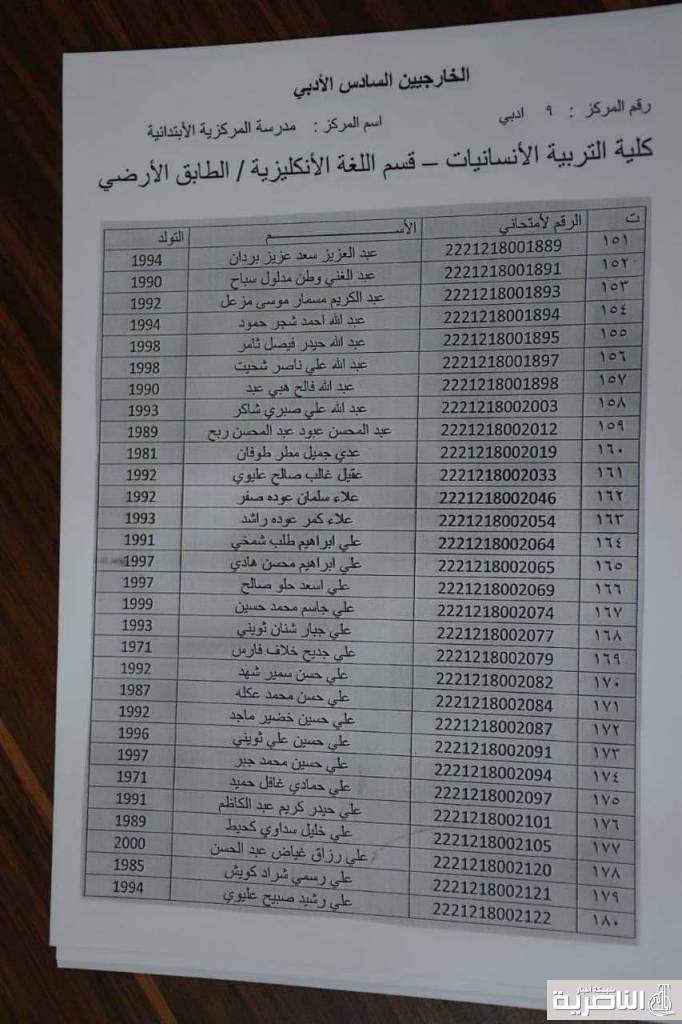 الخارجيين السادس الأدبي
رقم المركز : ٩ ادبي اسم المركز : مدرسة المركزية الأبتدائية
كلية التربية الأنسانيات – قسم اللغة الأنكليزية / الطابق الأرضي
ت الرقم لأمتحاني الأســـــم التولد
١٥١ 2221218001889 عبد العزيز سعد عزيز بردان 1994
١٥٢ 2221218001891 عبد الغني وطن مدلول سباح 1990
١٥٣ 2221218001893 عبد الكريم مسمار موسى مزعل 1992
١٥٤ 2221218001894 عبد الله احمد شجر حمود 1994
١٥٥ 2221218001895 عبد الله حيدر فيصل ثامر 1998
١٥٦ 2221218001897 عبد الله علي ناصر شحيت 1998
١٥٧ 2221218001898 عبد الله فالح هبي عبد 1990
١٥٨ 2221218002003 عبد الله علي صبري شاكر 1993
١٥٩ 2221218002012 عبد المحسن عبود عبد المحسن ربح 1989
١٦٠ 2221218002019 عدي جميل مطر طوفان 1981
١٦١ 2221218002033 عقيل غالب صالح عليوي 1992
١٦٢ 2221218002046 علاء سلمان عوده صفر 1992
١٦٣ 2221218002054 علاء كمر عوده راشد 1993
١٦٤ 2221218002064 علي ابراهيم طلب شمخي 1991
١٦٥ 2221218002065 علي ابراهيم محسن هادي 1997
١٦٦ 2221218002069 علي اسعد حلو صالح 1997
١٦٧ 2221218002074 علي جاسم محمد حسين 1999
١٦٨ 2221218002077 علي جبار شنان ثويني 1993
١٦٩ 2221218002079 علي جديح خلاف فارس 1971
١٧٠ 2221218002082 علي حسن سمير شهد 1992
١٧١ 2221218002084 علي حسن محمد عكله 1987
١٧٢ 2221218002087 علي حسين خضير ماجد 1992
١٧٣ 2221218002091 علي حسين علي ثويني 1996
١٧٤ 2221218002094 علي حسين محمد جبر 1997
١٧٥ 2221218002097 علي حمادي غافل حميد 1971
١٧٦ 2221218002101 علي حيدر كريم عبد الكاظم 1991
١٧٧ 2221218002105 علي خليل سداوي كحيط 1989
١٧٨ 2221218002120 علي رزاق غياض عبد الحسن 2000
١٧٩ 2221218002121 علي رسمي شراد كويش 1985
١٨٠ 2221218002122 علي رشيد صبيح عليوي 1994
شبكة أخبار
الناصرية